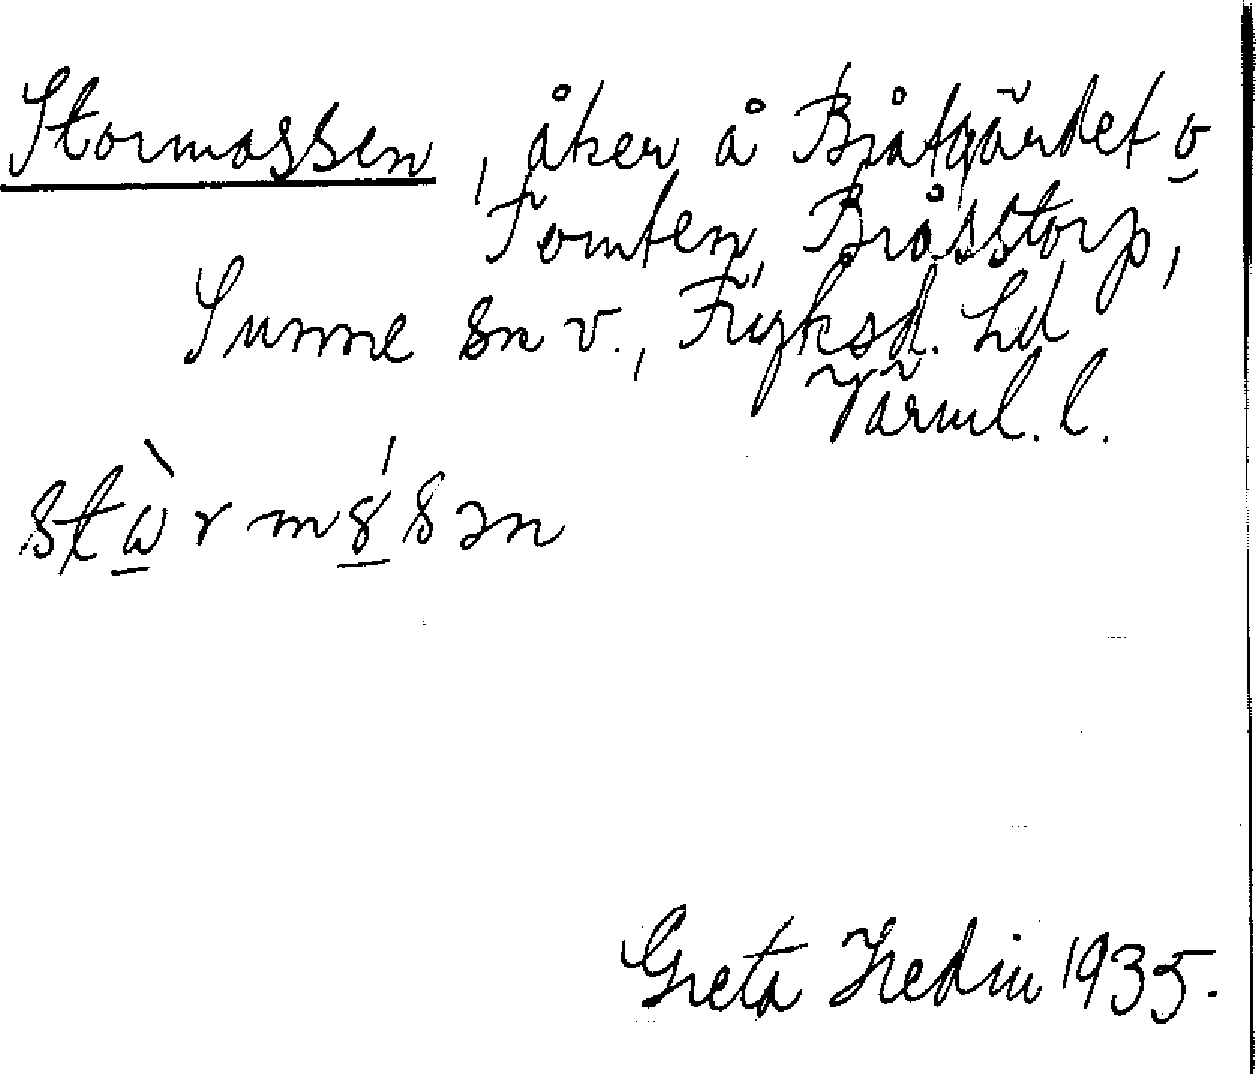 Stormossen, åker å Bråtgärdet o
Tomten, Bråsstorp,
Sunne sn v., Fryksd. hd
Värml. l.
stὼrmɞ́sən
Greta Hedin 1935.